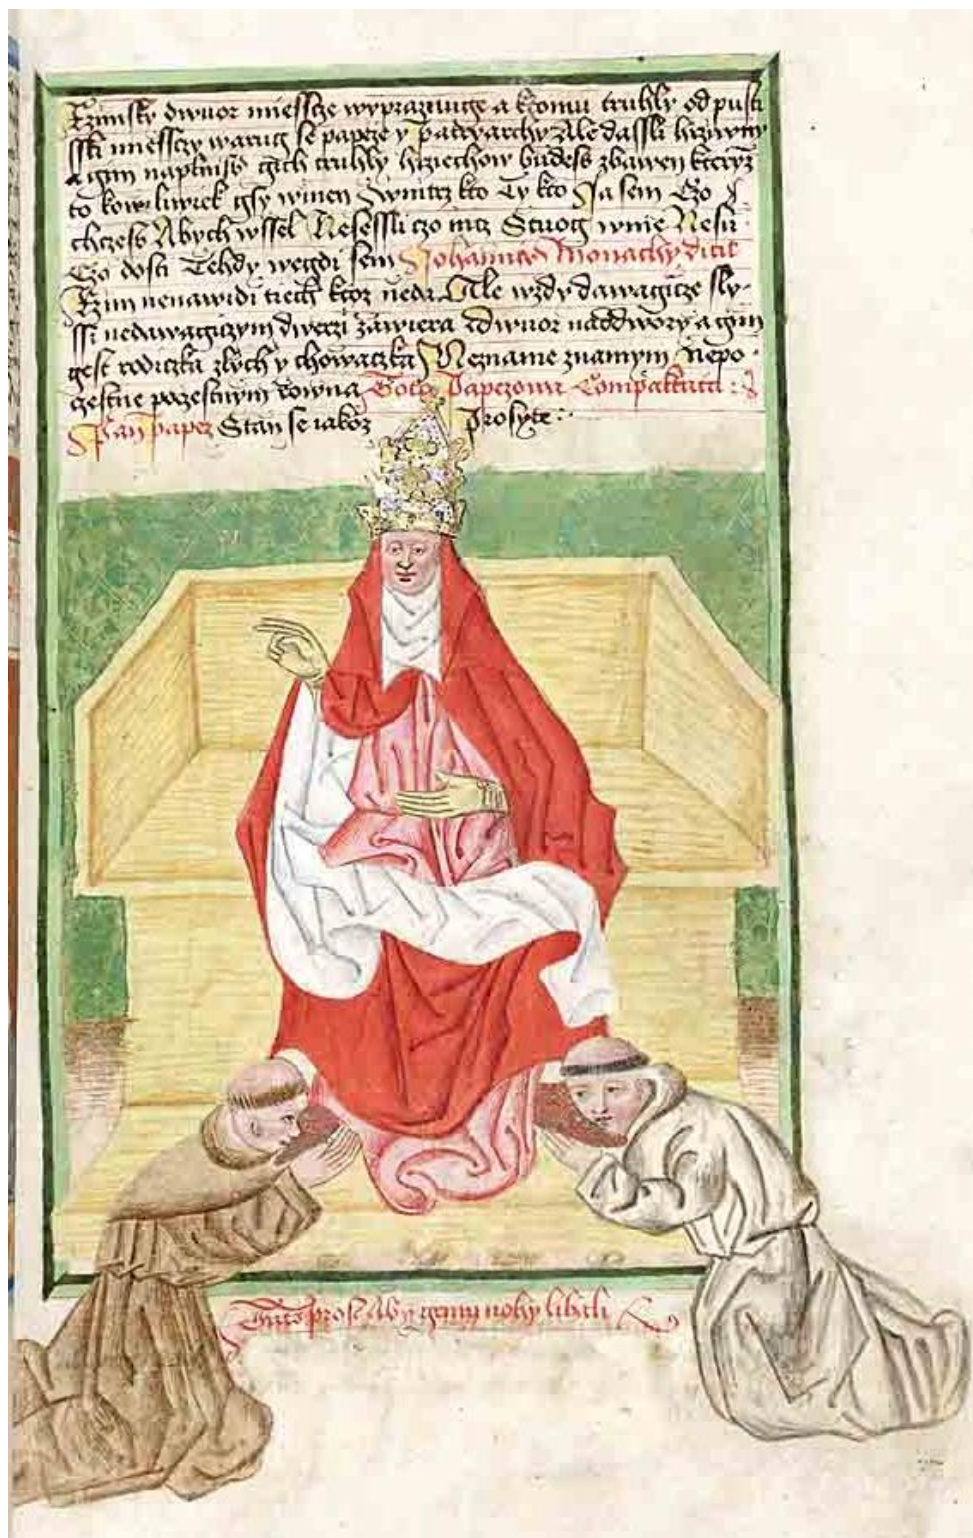 Rzimsky dwuor miessce wyprazniuge a k tomu truhly odpusti
ssli miessczy warug se papeze y patryarchy zle dassli hrziwny
a gim naplniss gich truhly hrziechow budess zbawen kteryz
to kowliwiek gsy winen Wnitrz kto Ty kto Ja sem Czo
chczess Abych wssel Nesessli czo nicz Stuog wnie Nesu
Czo dosti Tehdy wegdi sem Johannes Monachy dicit
Rzim nenawidi tiech ktoz neda Ale wzdy dawagicze sly-
ssi nedawagiczym dwerzi zawiera dwuor nad dwory a gim
gest rodiczka zlych y chowaczka Nezname znamym nepo-
czestne poczestnym rowna Toto Papezowa Compaktata
Pan papez Stan se iakoz Prosyte
Tuto prosy Aby gemu nohy libali